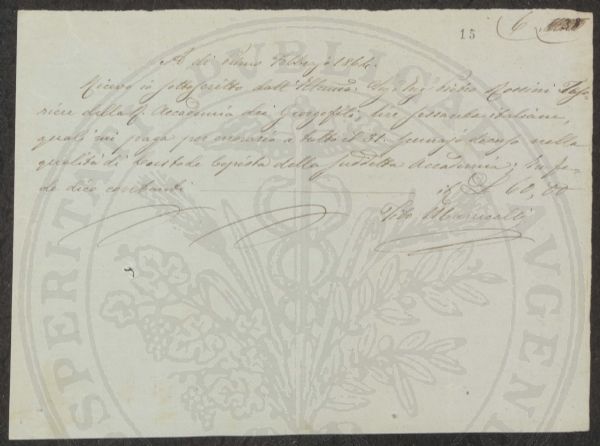 15 6
A dì primo Febbrajo 1864.
Ricevo io sottoscritto dall' Illmo. Sig. Ing. Pietro Rossini Teso-
riere della R. Accademia dei Georgofili, lire sessanta italiane,
quali mi paga per onorario a tutto il 31. Gennajo decorso nella
qualità di Custode Copista della suddetta Accademia; In fe-
de dico contanti £ 60,00
Tito
PUBLICAE PROSPERITATI AUGENDAE